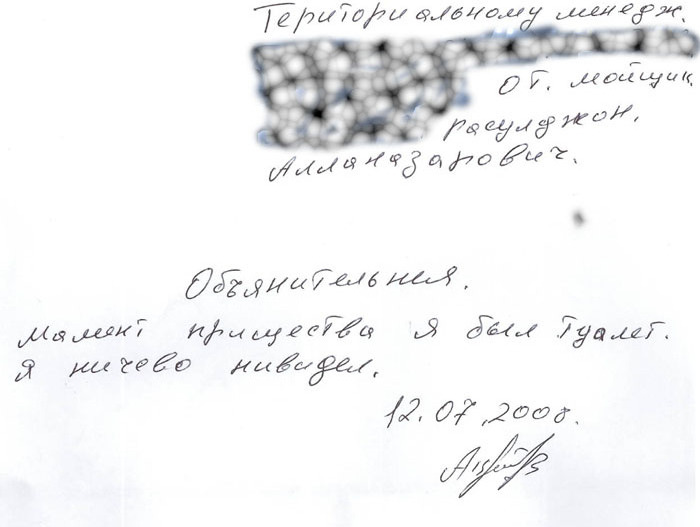 Териториальному менедж.
от. мойщик
расулджон.
Алланазарович.
Объянительная.
мамент прищества я был туалет.
я ничево нивидел.
12.07.2008.